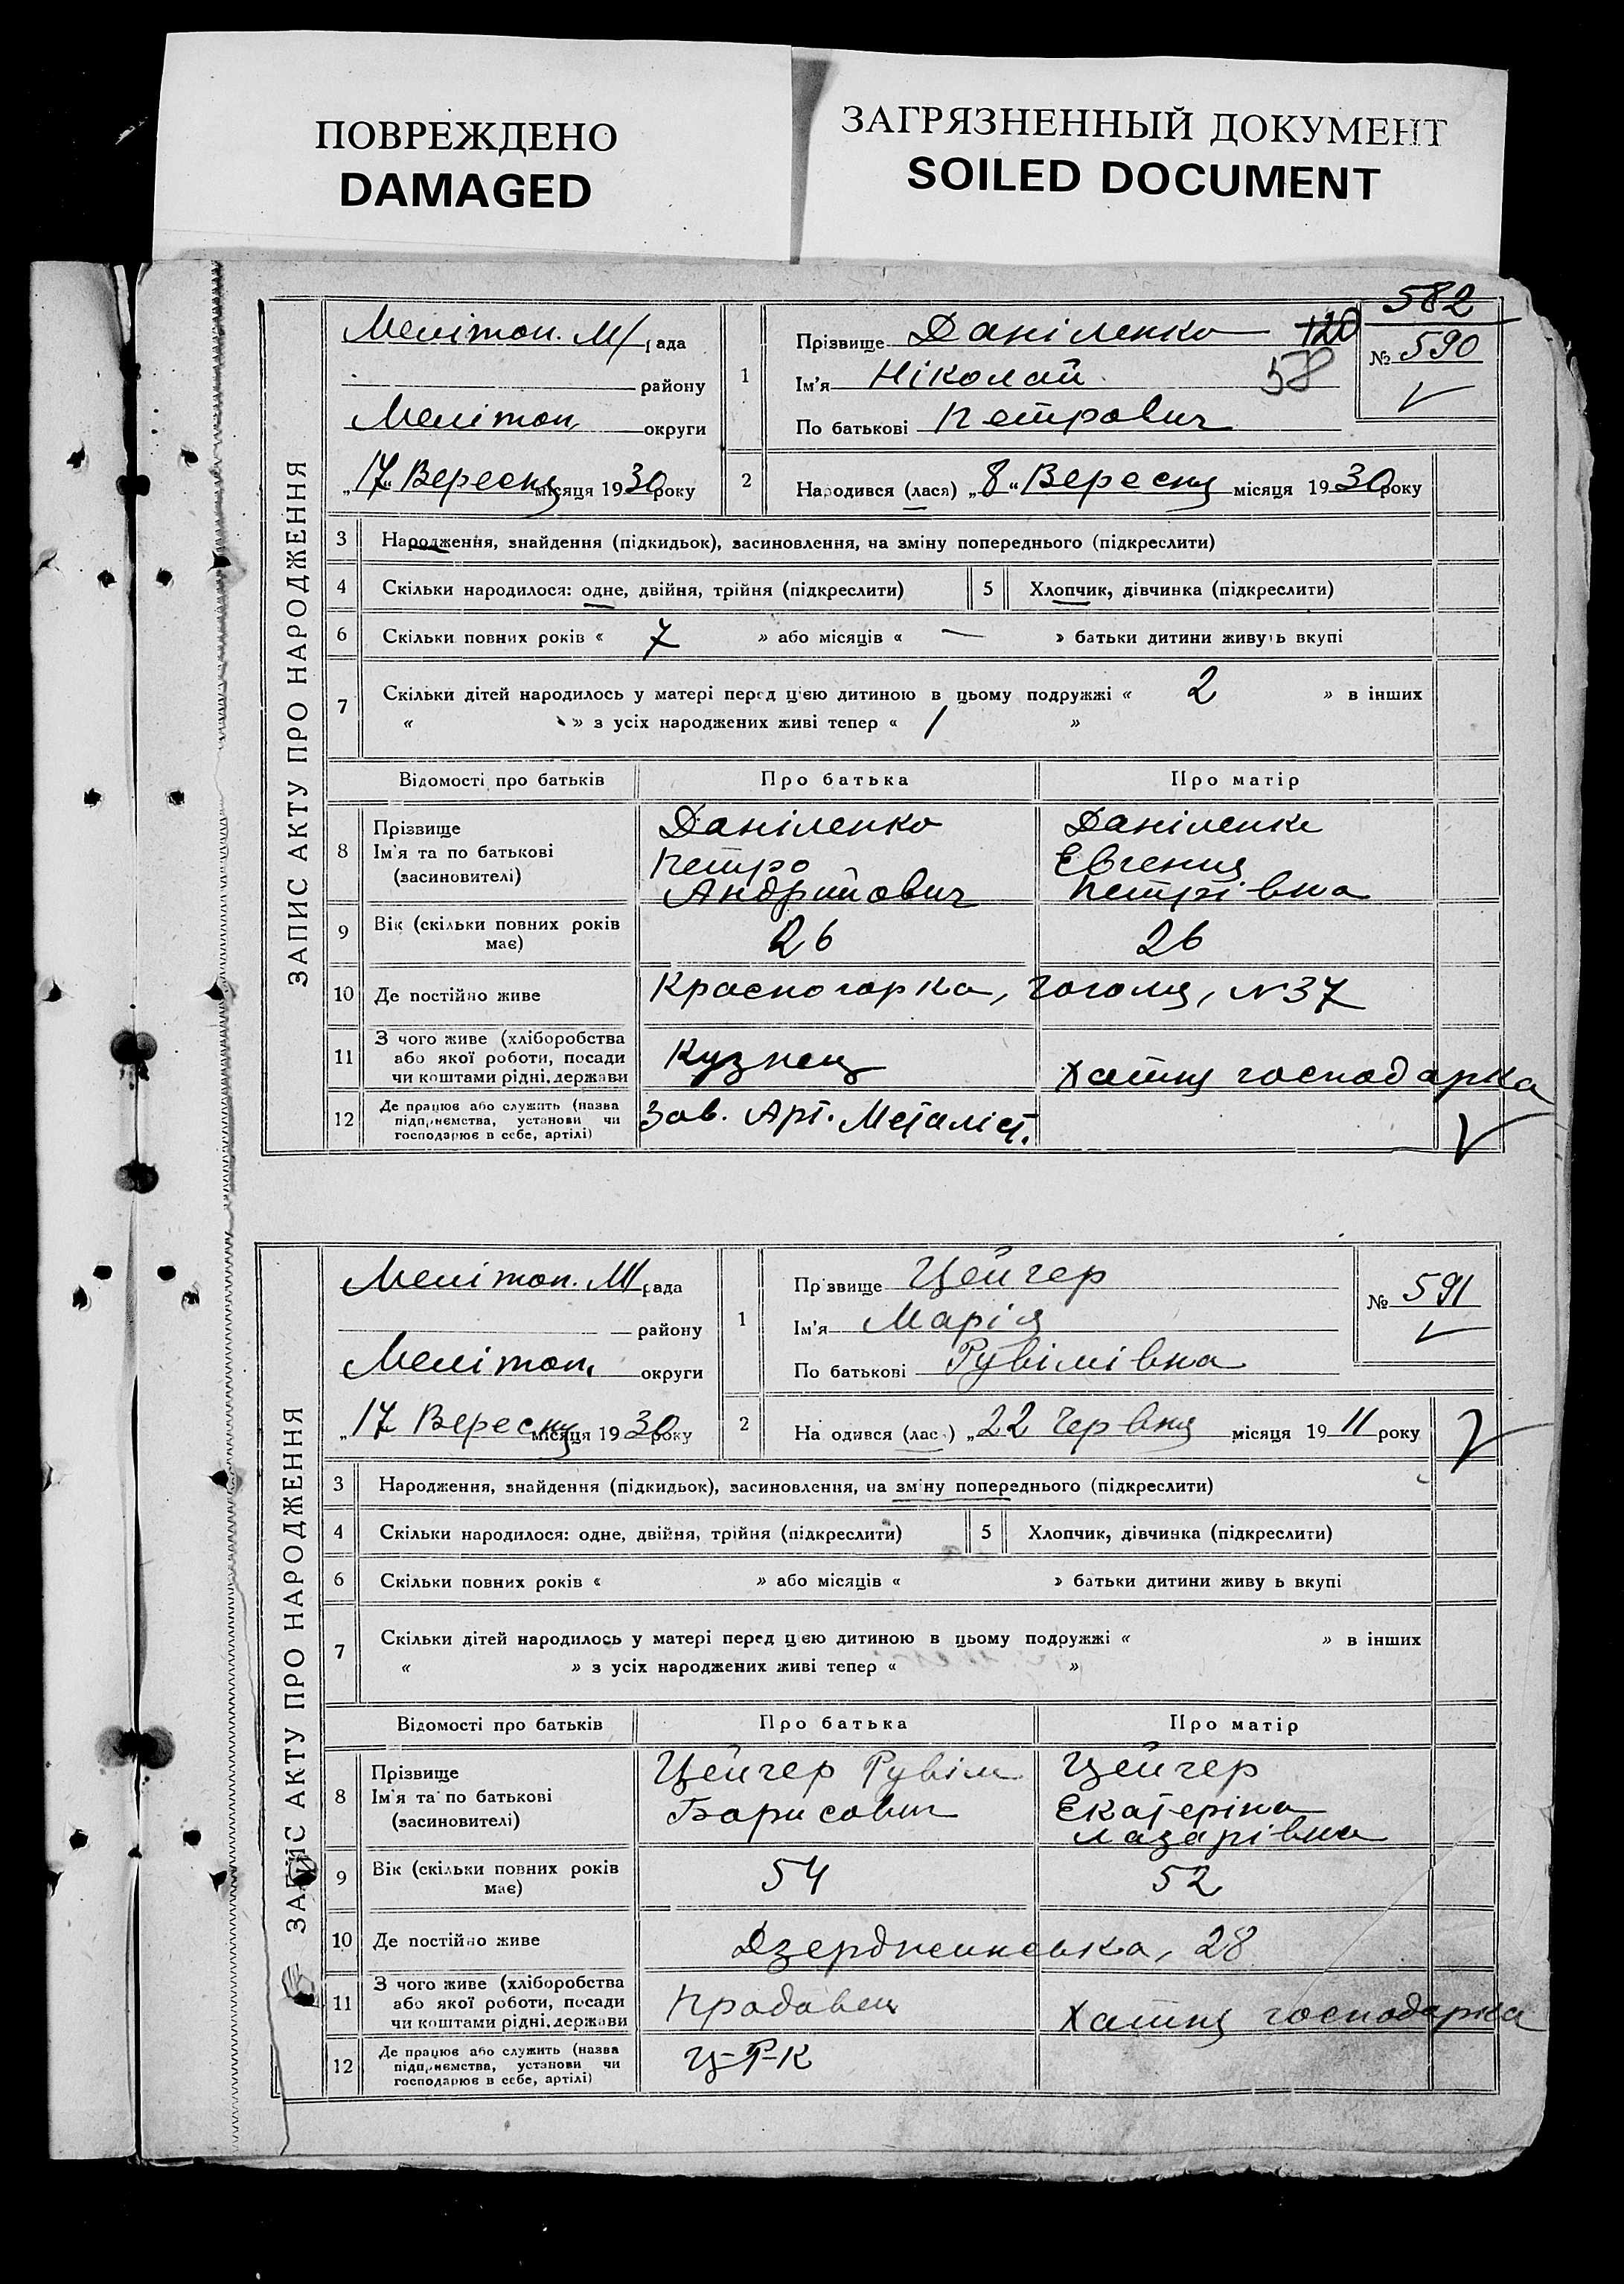 ПОВРЕЖДЕНО
DAMAGED
ЗАГРЯЗНЕННЫЙ ДОКУМЕНТ
SOILED DOCUMENT
ЗАПИС АКТУ ПРО НАРОДЖЕННЯ
582
Мелітоп. М/ рада
району
Мелітоп. округи
„17" Вересня місяця 1930 року
1
Прізвище Даніленко 120
Ім'я Ніколай 58
По батькові Петрович
№ 590
2 Народився (лася) „8" Вересня місяця 1930 року
3 Народження, знайдення (підкидьок), засиновлення, на зміну попереднього (підкреслити)
4 Скільки народилося: одне, двійня, трійня (підкреслити) 5 Хлопчик, дівчинка (підкреслити)
6 Скільки повних років « 7 » або місяців « — » батьки дитини живуть вкупі
7 Скільки дітей народилось у матері перед цією дитиною в цьому подружжі « 2 » в інших
« » з усіх народжених живі тепер « 1 »
Відомості про батьків Про батька Про матір
8 Прізвище Даніленко Даніленко
Ім'я та по батькові Петро Евгения
(засиновителі) Андрийович Петрівна
9 Вік (скільки повних років має) 26 26
10 Де постійно живе Красногорка, Гоголя, N 37
11 З чого живе (хліборобства
або якої роботи, посади Кузнец Хатня господарка
чи коштами рідні, держави
12 Де працює або служить (назва
підприємства, установи чи Зав. Арт. Металіст.
господарює в себе, артілі)
ЗАПИС АКТУ ПРО НАРОДЖЕННЯ
Мелітоп. М/ рада
району
Мелітоп. округи
„17 Вересня місяця 1930 року
1
Прізвище Цейгер
Ім'я Марія
По батькові Рувімівна
№ 591
2 Народився (лася) „22 Червня місяця 1911 року
3 Народження, знайдення (підкидьок), засиновлення, на зміну попереднього (підкреслити)
4 Скільки народилося: одне, двійня, трійня (підкреслити) 5 Хлопчик, дівчинка (підкреслити)
6 Скільки повних років « » або місяців « » батьки дитини живуть вкупі
7 Скільки дітей народилось у матері перед цією дитиною в цьому подружжі « » в інших
« » з усіх народжених живі тепер « »
Відомості про батьків Про батька Про матір
8 Прізвище Цейгер Рувім Цейгер
Ім'я та по батькові Борисович Екатеріна
(засиновителі) Лазарівна
9 Вік (скільки повних років має) 54 52
10 Де постійно живе Дзердженська, 28
11 З чого живе (хліборобства
або якої роботи, посади Продавец Хатня господарка
чи коштами рідні, держави
12 Де працює або служить (назва
підприємства, установи чи Ц-Р-К
господарює в себе, артілі)